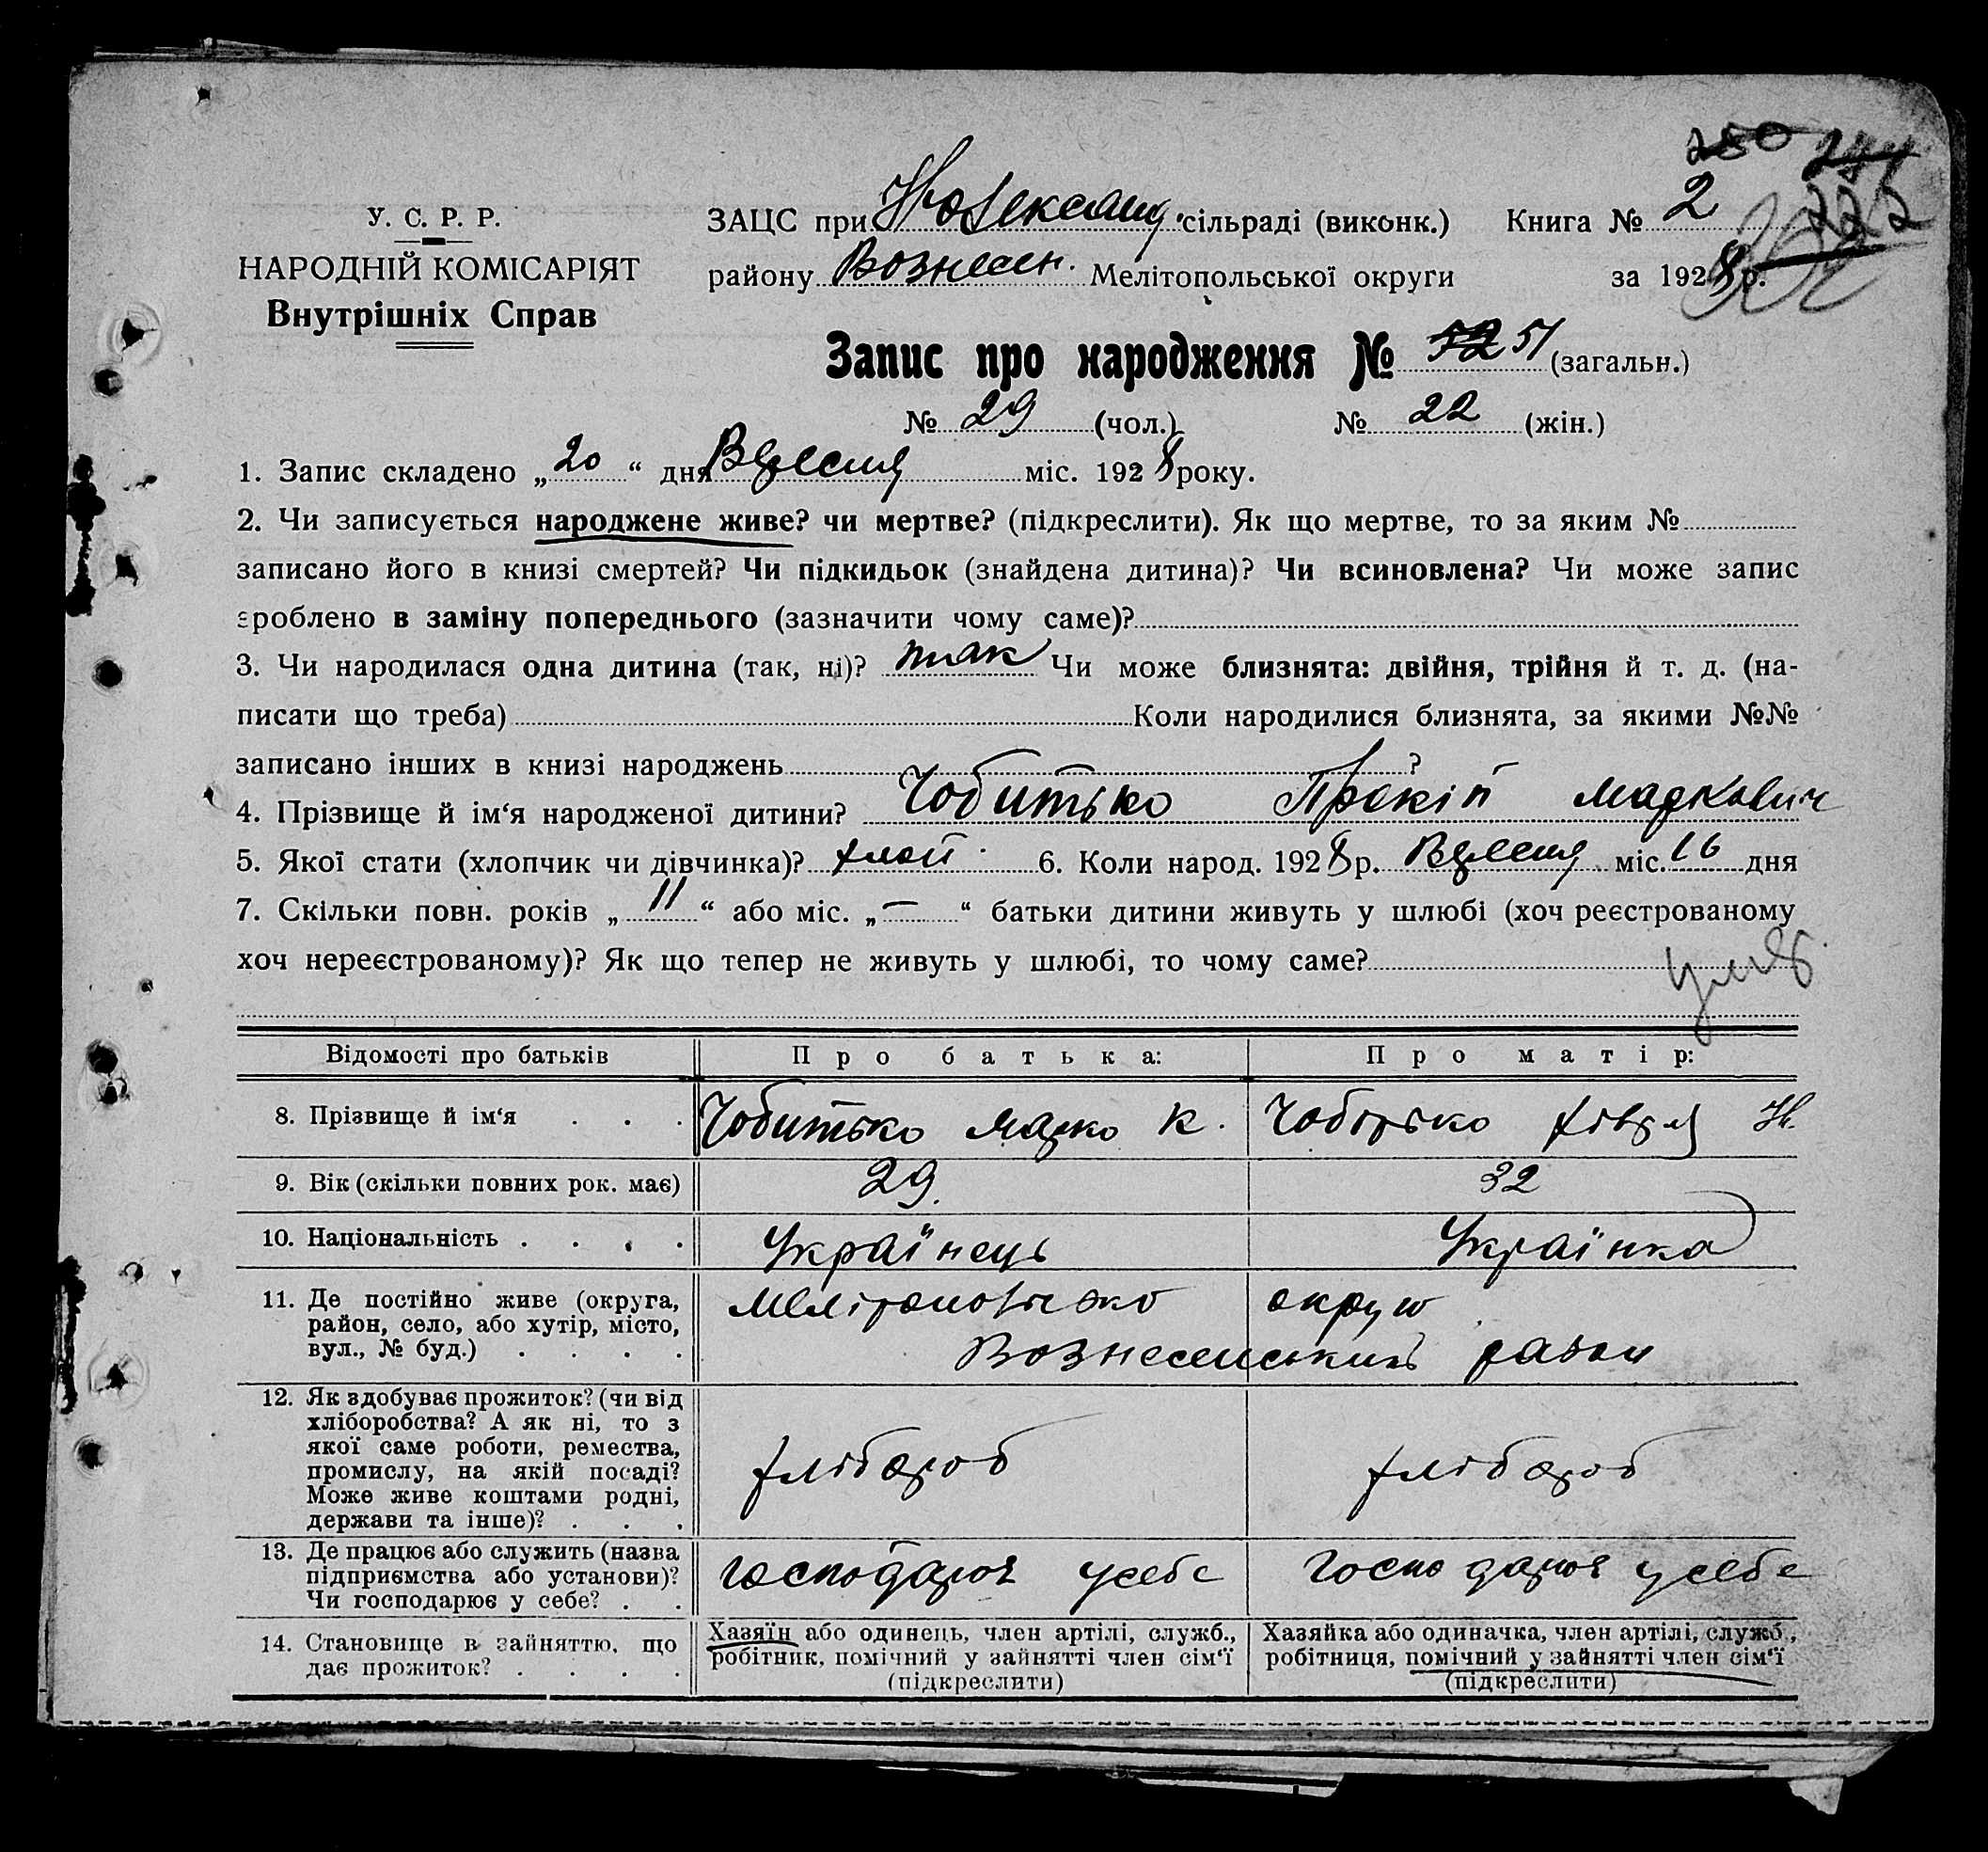 250 244
222
У. С. Р. Р.
НАРОДНІЙ КОМІСАРІЯТ
Внутрішніх Справ
ЗАЦС при Новоександ. сільраді (виконк.) Книга № 2
району Вознесен. Мелітопольської округи за 1928 р.
Запис про народження № 52 51 (загальн.)
№ 29 (чол.) № 22 (жін.)
1. Запис складено „ 20 “ дня Вересня міс. 1928 року.
2. Чи записується народжене живе? чи мертве? (підкреслити). Як що мертве, то за яким №
записано його в книзі смертей? Чи підкидьок (знайдена дитина)? Чи всиновлена? Чи може запис
зроблено в заміну попереднього (зазначити чому саме)?
3. Чи народилася одна дитина (так, ні)? так Чи може близнята: двійня, трійня й т. д. (на-
писати що треба) Коли народилися близнята, за якими №№
записано інших в книзі народжень ?
4. Прізвище й ім‘я народженої дитини? Чобитько Прокіп Маркович
5. Якої стати (хлопчик чи дівчинка)? хлоп. 6. Коли народ. 1928 р. Вересня міс. 16 дня
7. Скільки повн. років „ 11 “ або міс. „ — “ батьки дитини живуть у шлюбі (хоч реєстрованому
хоч нереєстрованому)? Як що тепер не живуть у шлюбі, то чому саме?
Відомості про батьків Про батька: Про матір:
8. Прізвище й ім‘я . . . Чобитько Марко К. Чобітько Хівря Н.
9. Вік (скільки повних рок. має) 29. 32
10. Національність . . . . Українець Українка
11. Де постійно живе (округа,
район, село, або хутір, місто,
вул., № буд.) . . . .
Мелітопольсько округи
Вознесенський район
12. Як здобуває прожиток? (чи від
хліборобства? А як ні, то з
якої саме роботи, ремества,
промислу, на якій посаді?
Може живе коштами родні,
держави та інше)? . . .
хлібороб хлібороб
13. Де працює або служить (назва
підприємства або установи)?
Чи господарює у себе? . .
господарює у себе господарює у себе
14. Становище в зайняттю, що
дає прожиток? . . . .
Хазяїн або одинець, член артілі, служб.,
робітник, помічний у зайнятті член сім‘ї
(підкреслити)
Хазяйка або одиначка, член артілі, служб.,
робітниця, помічний у зайнятті член сім‘ї
(підкреслити)